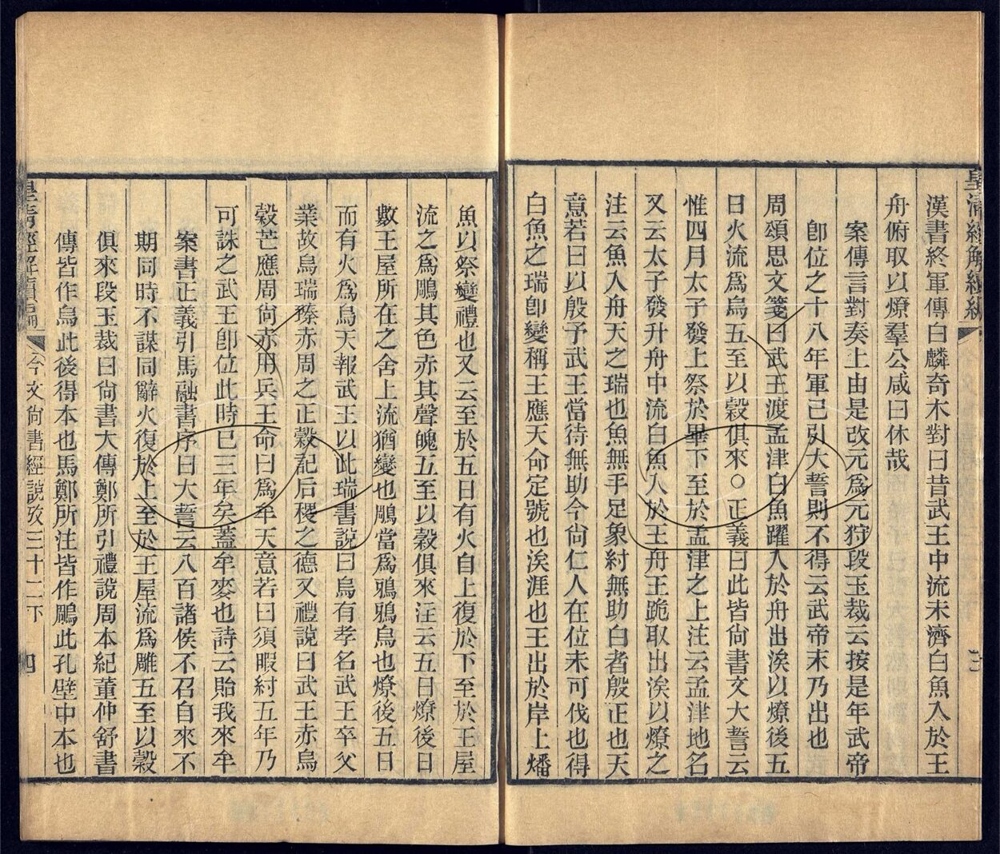 漢書終軍傳白麟奇木對曰昔武王中流未濟白魚入於王
舟俯取以燎羣公咸曰休哉
案傳言對奏上由是改元為元狩段玉裁云按是年武帝
卽位之十八年軍已引大誓則不得云武帝末乃出也
周頌思文箋曰武王渡孟津白魚躍入於舟出涘以燎後五
日火流爲烏五至以穀俱來○正義曰此皆尚書文大誓云
惟四月太子發上祭於畢下至於孟津之上注云孟津地名
又云太子發升舟中流白魚入於王舟王跪取出涘以燎之
注云魚入舟天之瑞也魚無手足象紂無助白者殷正也天
意若曰以殷予武王當待無助今尚仁人在位未可伐也得
白魚之瑞卽變稱王應天命定號也涘涯也王出於岸上燔
魚以祭變禮也又云至於五日有火自上復於下至於王屋
流之爲鵰其色赤其聲魄五至以穀俱來注云五日燎後日
數王屋所在之舍上流猶變也鵰當爲鴉鴉烏也燎後五日
而有火爲烏天報武王以此瑞書說曰烏有孝名武王卒父
業故烏瑞臻赤周之正穀記后稷之德又禮說曰武王赤烏
穀芒應周尚赤用兵王命曰爲牟天意若曰須暇紂五年乃
可誅之武王卽位此時已三年矣蓋牟麥也詩云貽我來牟
案書正義引馬融書序曰大誓云八百諸侯不召自來不
期同時不謀同辭火復於上至於王屋流爲雕五至以穀
俱來段玉裁曰尚書大傳鄭所引禮說周本紀董仲舒書
傳皆作烏此後得本也馬鄭所注皆作鵰此孔壁中本也
皇清經解續編
今文尚書經說攷三十二下
四